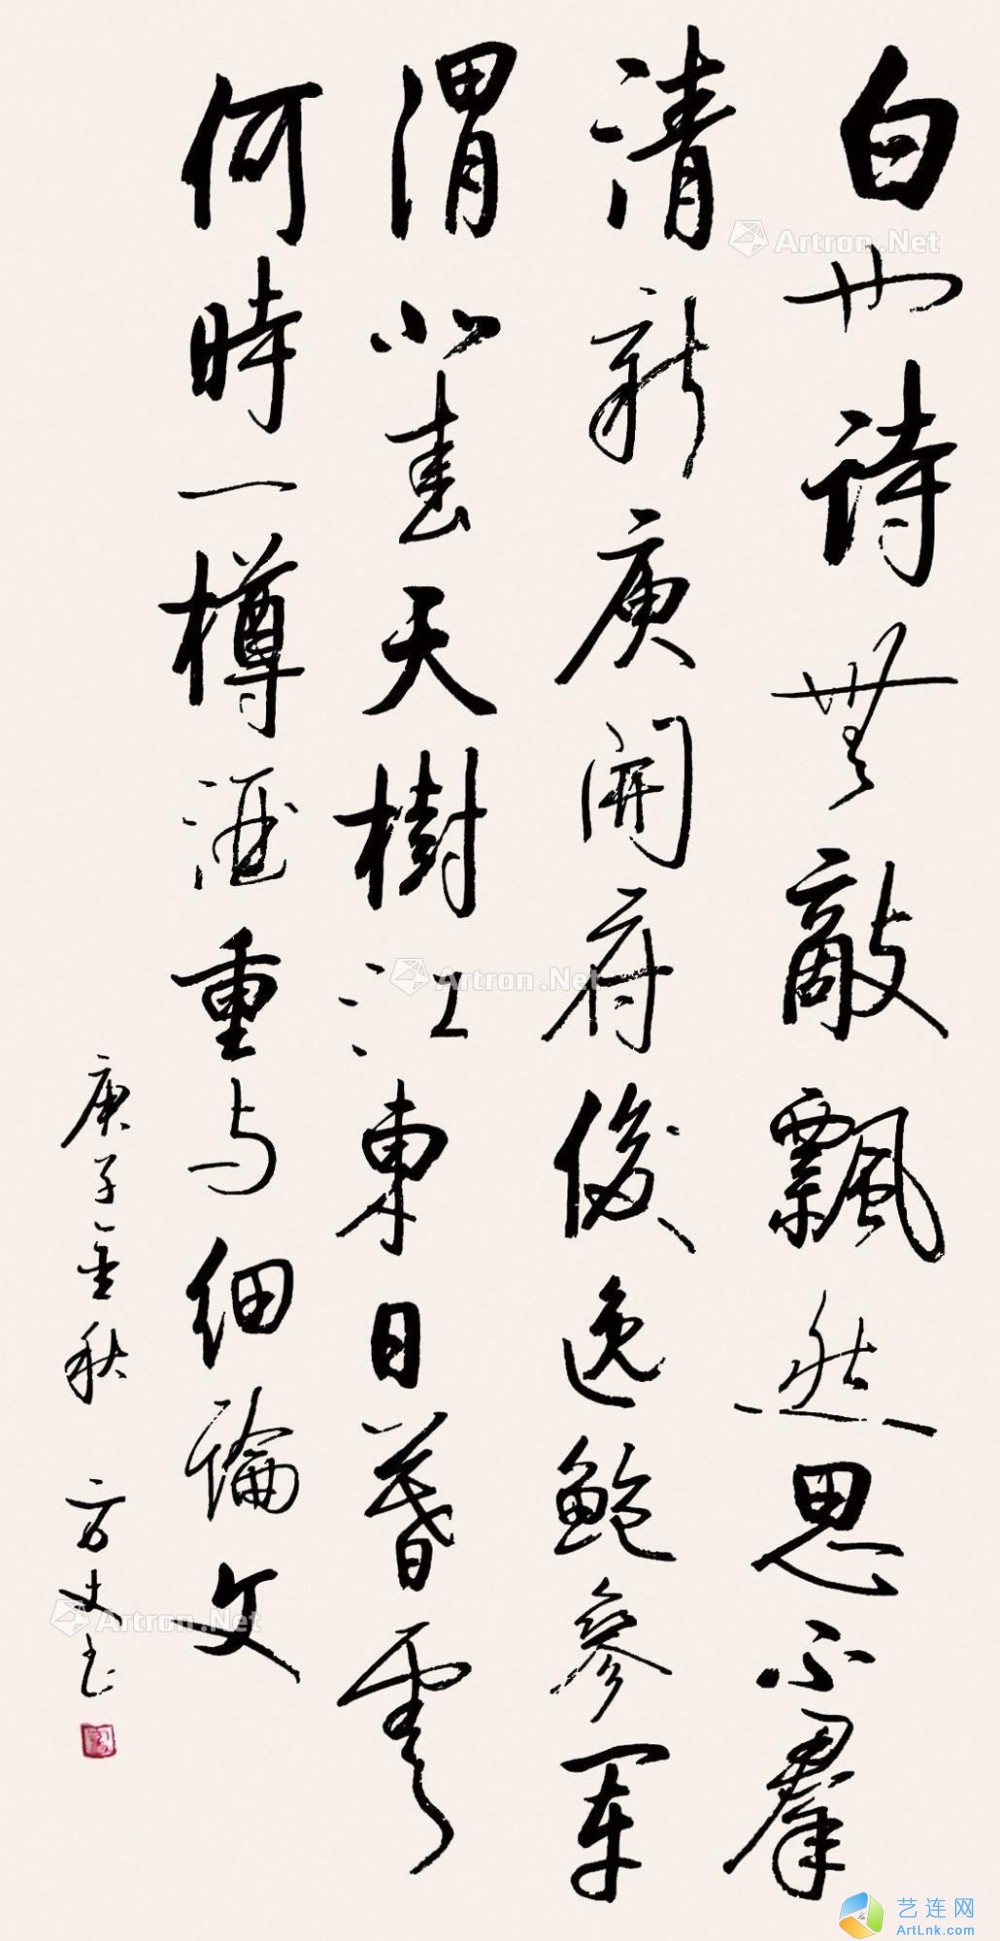 白也詩無敵飄然思不羣
清新庾開府俊逸鮑參軍
渭北春天樹江東日暮雲
何時一樽酒重与細論文
庚子金秋 方丈書
Artron.Net
Artron.Net
Artron.Net
艺连网
ArtLnk.com